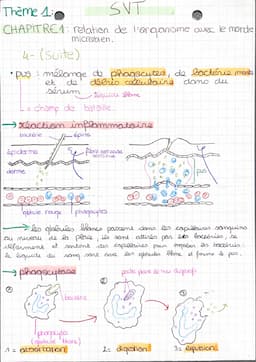 Thème 1.
SVT
CHAPITRE 1: relation de l'organisme avec le monde
microbien.
4- (suite)
• pus : mélange de phagocytes, de bactérie mortes
et de débris cellulaires dans du
sérum
liquide
= champ de bataille
→ réaction inflammatoire
bactérie
épine
épiderme
fibre nerveuse
derme
pus
globule rouge
phagocytes
→ les globules blancs passent dans les capillaires sanguins
au niveau de la plaie, ils sont attirés par les bactéries, se
déforment et sortent des capillaires pour
bactéries.
le liquide du sang sort avec les globules blancs et forme le pus.
→ phagocytose
bactérie
phagocyte
(globule blanc)
1=
2= digestion
3=